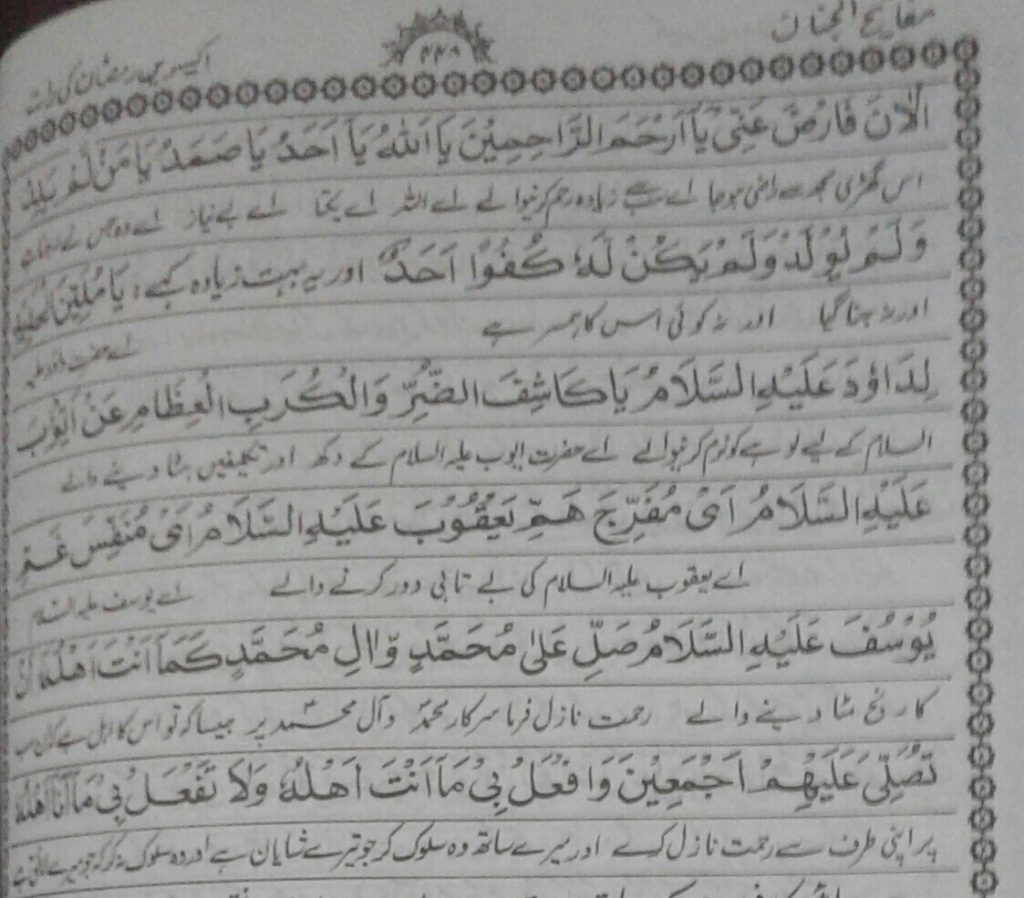 مفاتیح الجنان
۴۴۸
اکیسویں رمضان کی رات
الْاٰنَ فَارْضَ عَنِّیْ یَاۤ اَرْحَمَ الرَّاحِمِیْنَ یَاۤ اَللّٰهُ یَاۤ اَحَدُ یَا صَمَدُ یَا مَنْ لَمْ یَلِدْ
اس گھڑی مجھ سے راضی ہو جا اے سب سے زیادہ رحم کرنیوالے اے اللہ اے یکتا اے بے نیاز اے وہ جس نے
وَلَمْ یُوْلَدْ وَلَمْ یَكُنْ لَّهٗ كُفُوًا اَحَدٌ اور یہ بہت زیادہ کہے: یَا مُلَیِّنَ الْحَدِیْدِ
اور نہ جنا گیا اور نہ کوئی اس کا ہمسر ہے اے حضرت داؤد علیہ
لِدَاوٗدَ عَلَیْهِ السَّلَامُ یَا كَاشِفَ الضُّرِّ وَالْكُرَبِ الْعِظَامِ عَنْ اَیُّوْبَ
السلام کے لیے لوہے کو نرم کرنیوالے اے حضرت ایوب علیہ السلام کے دکھ اور تکلیفیں ہٹا دینے والے
عَلَیْهِ السَّلَامُ اَیْ مُفَرِّجَ هَمِّ یَعْقُوْبَ عَلَیْهِ السَّلَامُ اَیْ مُنَفِّسَ غَمِّ
اے یعقوب علیہ السلام کی بے تابی دور کرنے والے اے یوسف علیہ السلام
یُوْسُفَ عَلَیْهِ السَّلَامُ صَلِّ عَلٰی مُحَمَّدٍ وَّاٰلِ مُحَمَّدٍ كَمَاۤ اَنْتَ اَهْلُهٗۤ اَنْ
کا رنج مٹا دینے والے رحمت نازل فرما سرکار محمدؐ وآل محمدؑ پر جیسا کہ تو اس کا اہل ہے کہ ان سب
تُصَلِّیَ عَلَیْهِمْ اَجْمَعِیْنَ وَافْعَلْ بِیْ مَاۤ اَنْتَ اَهْلُهٗ وَلَا تَفْعَلْ بِیْ مَاۤ اَنَا اَهْلُهٗ
پر اپنی طرف سے رحمت نازل کرے اور میرے ساتھ وہ سلوک کر جو تیرے شایان ہے اور وہ سلوک نہ کر کہ جو میرے لائق ہے